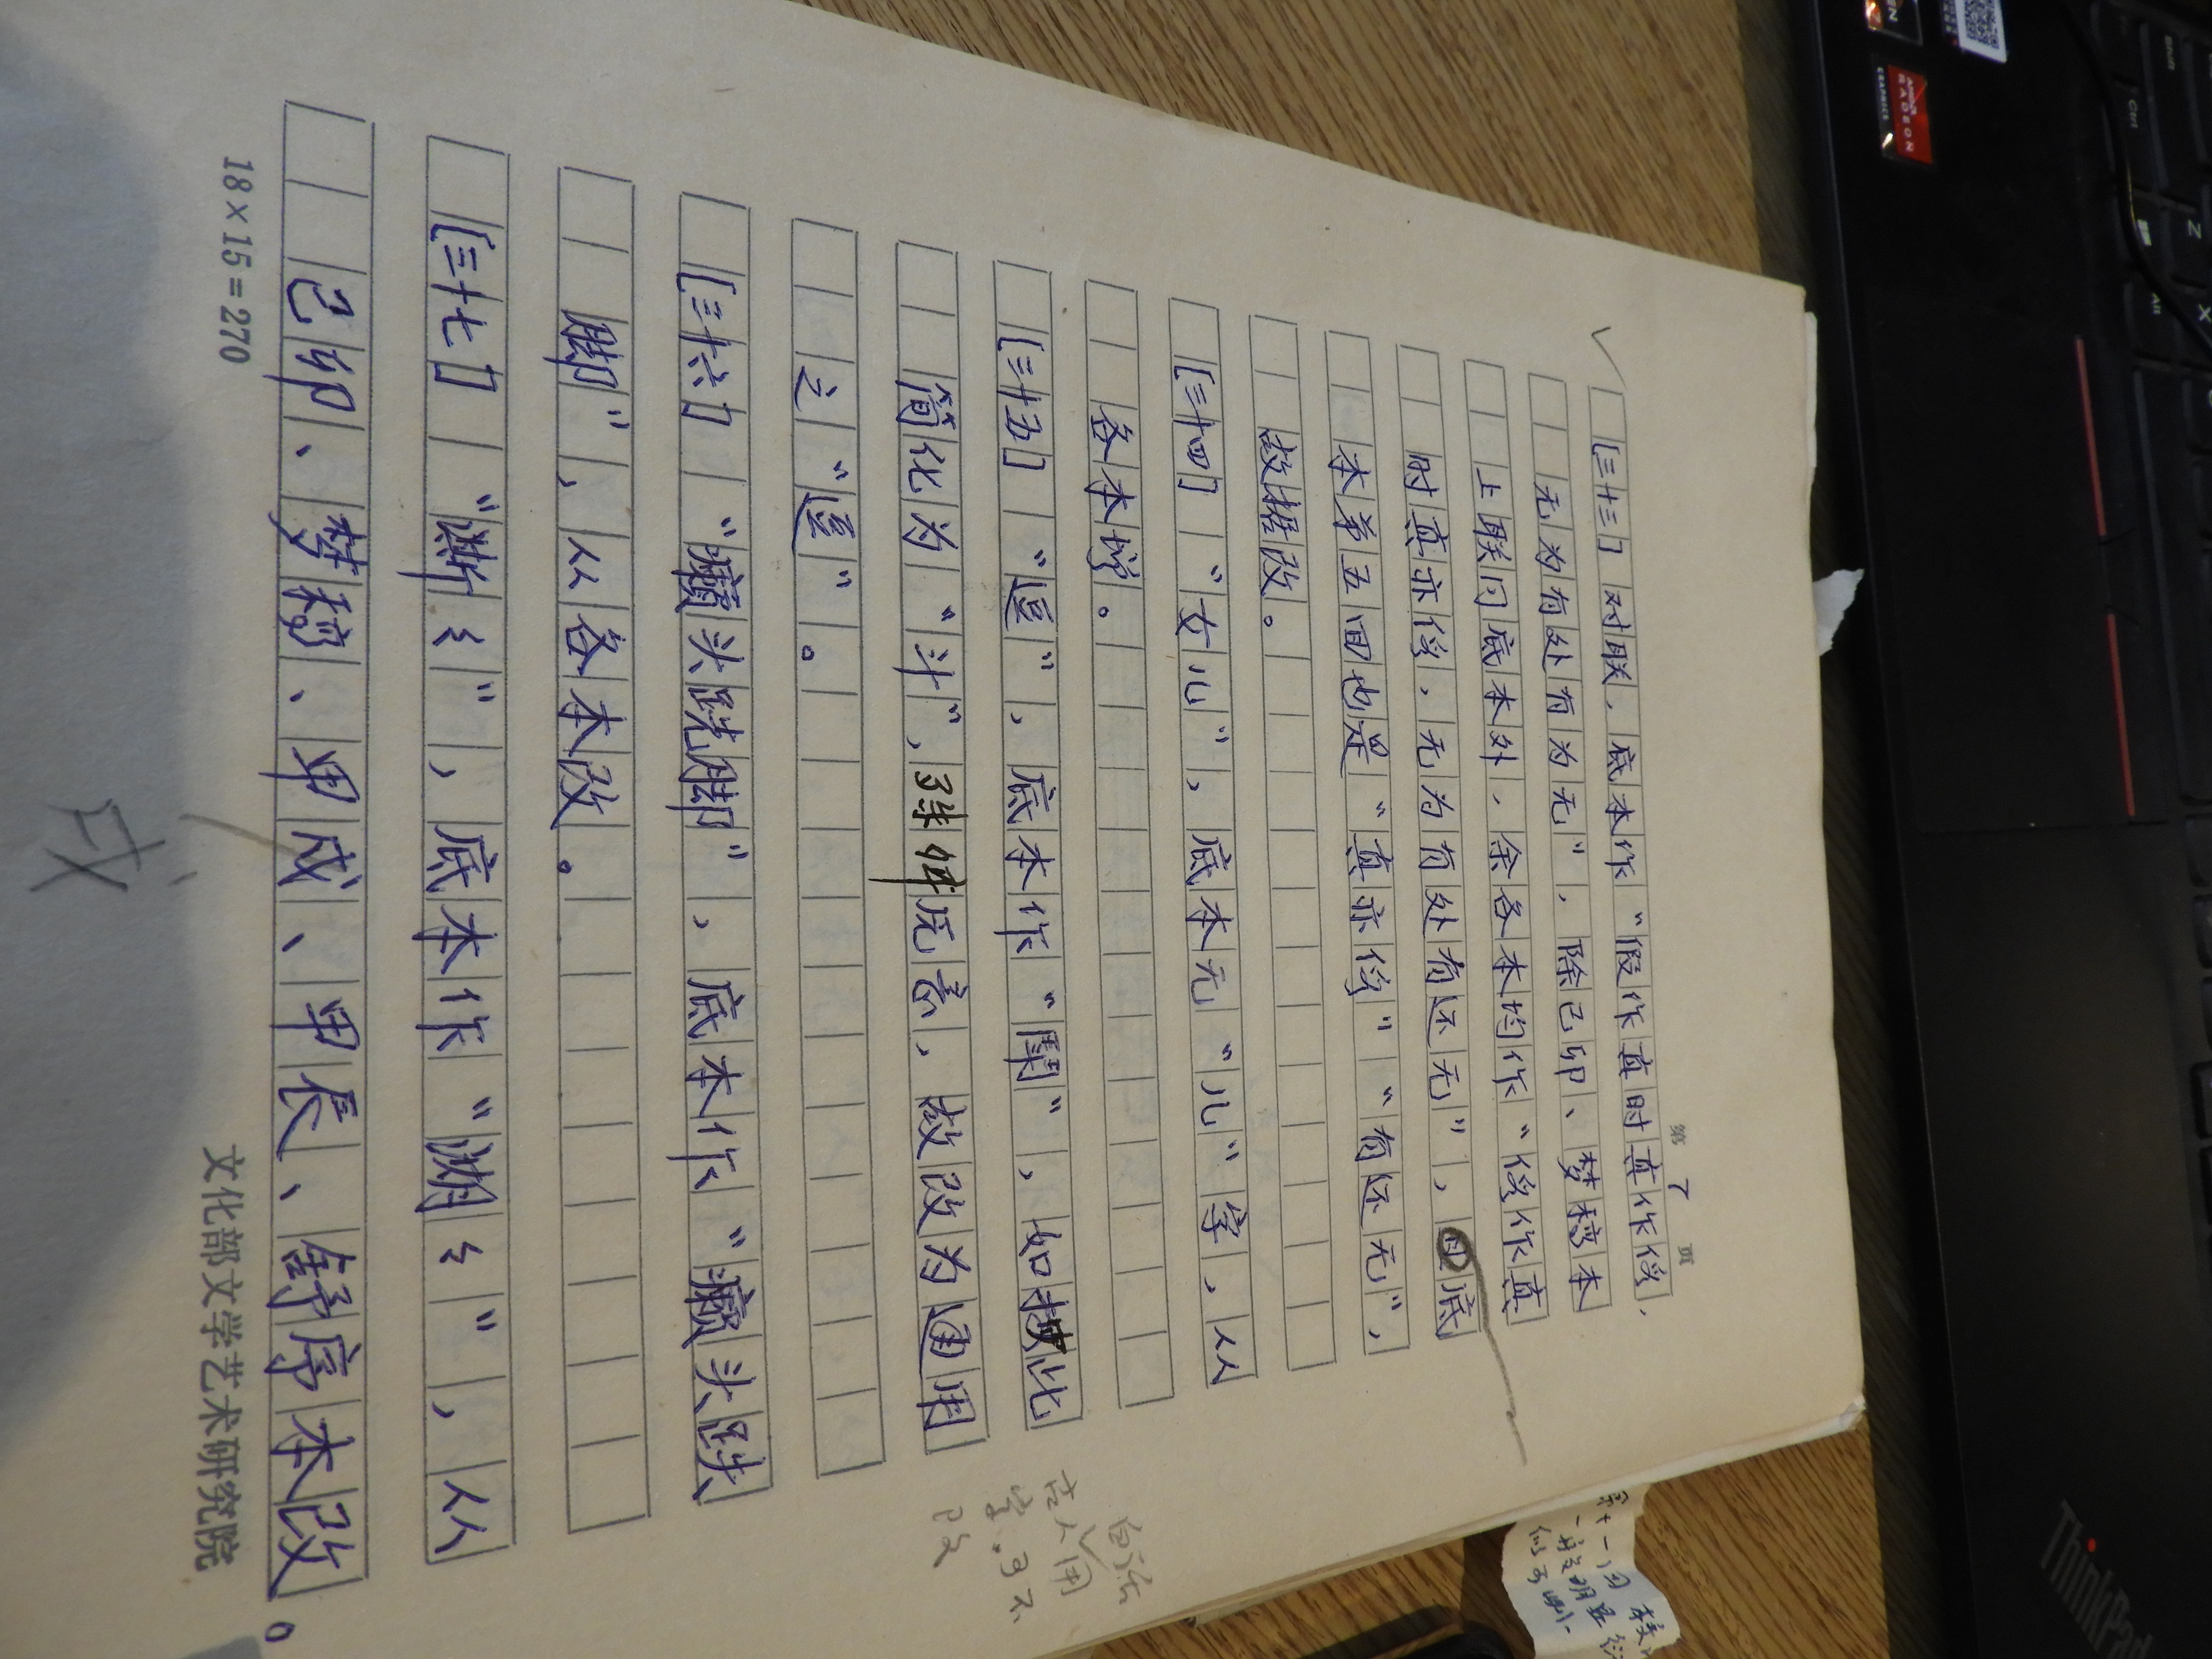 第 7 页
[三十三] 对联，底本作“假作真时真作假，
无为有处有为无”，除己卯、梦稿本
上联同底本外，余各本均作“假作真
时真亦假，无为有处有还无”，底
本第五回也是“真亦假”“有还无”，
故据改。
[三十四] “女儿”，底本无“儿”字，从
各本增。
[三十五] “逗”，底本作“鬪”，如按此
简化为“斗”，则无意，故改为通用
之“逗”。
[三十六] “癞头跣脚”，底本作“癞头跌
脚”，从各本改。
[三十七] “渐〻”，底本作“湖〻”，从
己卯、梦稿、甲戍、甲辰、舒序本改。
18×15=270
文化部文学艺术研究院
戌
古人用
ThinkPad
AMD
RADEON
GRAPHICS
Ctrl
Alt
Shift
Z
X